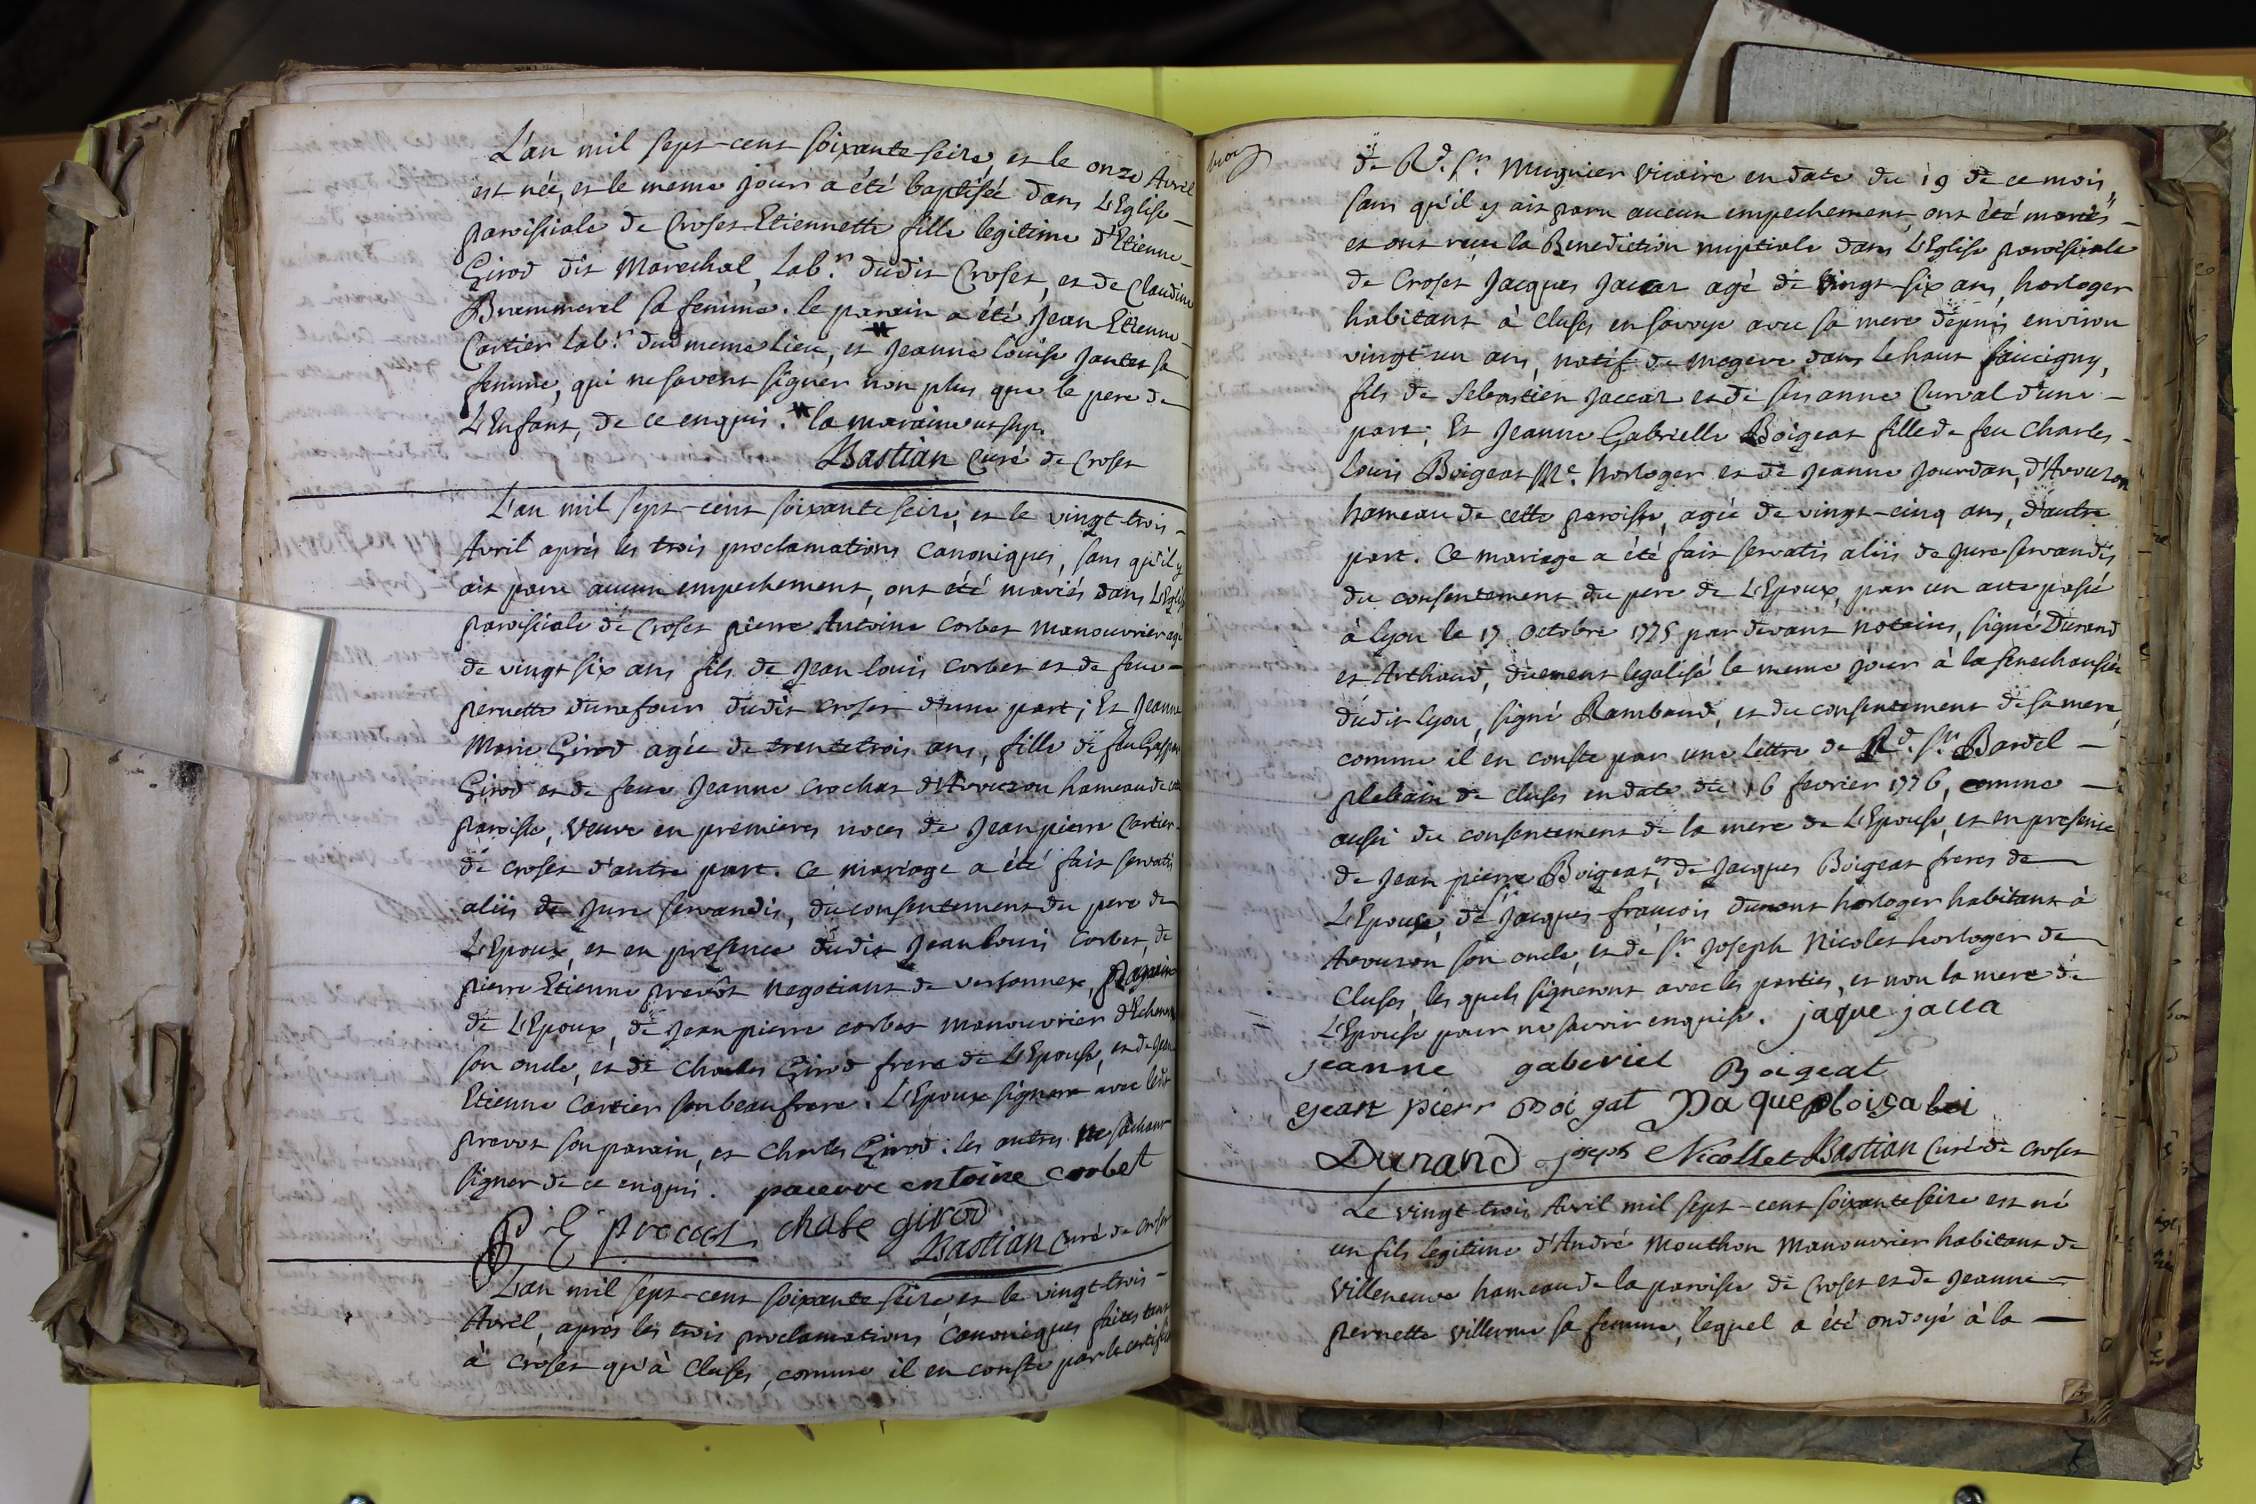 L'an mil sept-cent soixante seize, et le onze Avril
est née, et le meme jour a été baptisée dans L'Eglise
paroissiale de Croset Etiennette fille legitime d'Etienne
Girod dit Marechal, lab.r dudit Croset, et de Claudine
Brammerel sa femme. le parain a été Jean Etienne
Cartier lab.r du meme lieu, et Jeanne Louise Jantet sa
femme, qui ne savent signer non plus que le pere de
L'Enfant, de ce enquis. la maraine ut sup.
Bastian Curé de Croset
L'an mil sept-cent soixante seize, et le vingt trois
Avril après les trois proclamations Canoniques, sans qu'il y
ait paru aucun empechement, ont été mariés dans L'Eglise
paroissiale de Croset pierre Antoine Corbet Manouvrier agé
de vingt six ans fils de Jean Louis Corbet et de feue
pernette dunefour dudit Croset d'une part; Et Jeanne
Marie Girod agée de trente trois ans, fille de feu Gaspar
Girod et de feue Jeanne Crochat d'Avouzon hameau de cette
paroisse, veuve en premieres noces de Jean pierre Cartier
de Croset d'autre part. Ce mariage a été fait servatis
aliis de Jure servandis, du consentement du pere de
L'Epoux, et en presence dudit Jean Louis Corbet, de
pierre Etienne prevôt Negotiant de versonnex, parain
de L'Epoux, de Jean pierre Corbet manouvrier d'Echenevex
son oncle, et de Charles Girod frere de L'Epouse, et de Jean
Etienne Cartier son beaufrere. L'Epoux signera avec ledit
prevot son parain, et Charles Girod: les autres ne sachant
signer de ce enquis. paierre entoine corbet
P E prevost chale girod
Bastian Curé de Croset
L'an mil sept-cent soixante seize et le vingt-trois
Avril, après les trois proclamations Canoniques faites tant
à Croset qu'à Cluses, comme il en conste par le certificat
de R.d S.r Mugnier vicaire en date du 19 de ce mois,
sans qu'il y ait paru aucun empechement, ont été mariés
et ont reçu la Benediction nuptiale dans L'Eglise paroissiale
de Croset Jacques Jaccar agé de vingt-six ans, horloger
habitant à Cluses en Savoye avec sa mere depuis environ
vingt un ans, natif de Megeve dans le haut faucigny,
fils de Sebastien Jaccar et de Susanne Curval d'une
part; Et Jeanne Gabrielle Boigeat fille de feu Charles
Louis Boigeat M.e horloger et de Jeanne Jourdan, d'Avouzon
hameau de cette paroisse, agée de vingt-cinq ans, d'autre
part. Ce mariage a été fait servatis aliis de Jure servandis
du consentement du pere de L'Epoux, par un acte passé
à Lyon le 17 Octobre 1775 par devant Notaires, signé Durand
et Arthaud, duement legalisé le meme jour à la senechaussée
dudit Lyon, signé Rambaud, et du consentement de sa mere,
comme il en conste par une Lettre de R.d S.r Bardel
plebain de Cluses en date du 16 fevrier 1776, comme
aussi du consentement de la mere de L'Epouse, et en presence
de Jean pierre Boigeat, de Jacques Boigeat freres de
L'Epouse, de S.r Jacques-françois dunant horloger habitant à
Avouzon son oncle, et de S.r Joseph Nicolet horloger de
Cluses, les quels signeront avec les parties, et non la mere de
L'Epouse pour ne savoir enquise. jaque jacca
jeanne gaberiel Boigeat
Jean pierr Boi gat
Dunand joseph Nicollet Bastian Curé de Croset
Le vingt trois Avril mil sept-cent soixante seize est né
un fils legitime d'André Mouthon Manouvrier habitant de
Villeneuve hameau de la paroisse de Croset et de Jeanne
pernette villerme sa femme, lequel a été ondoyé à la